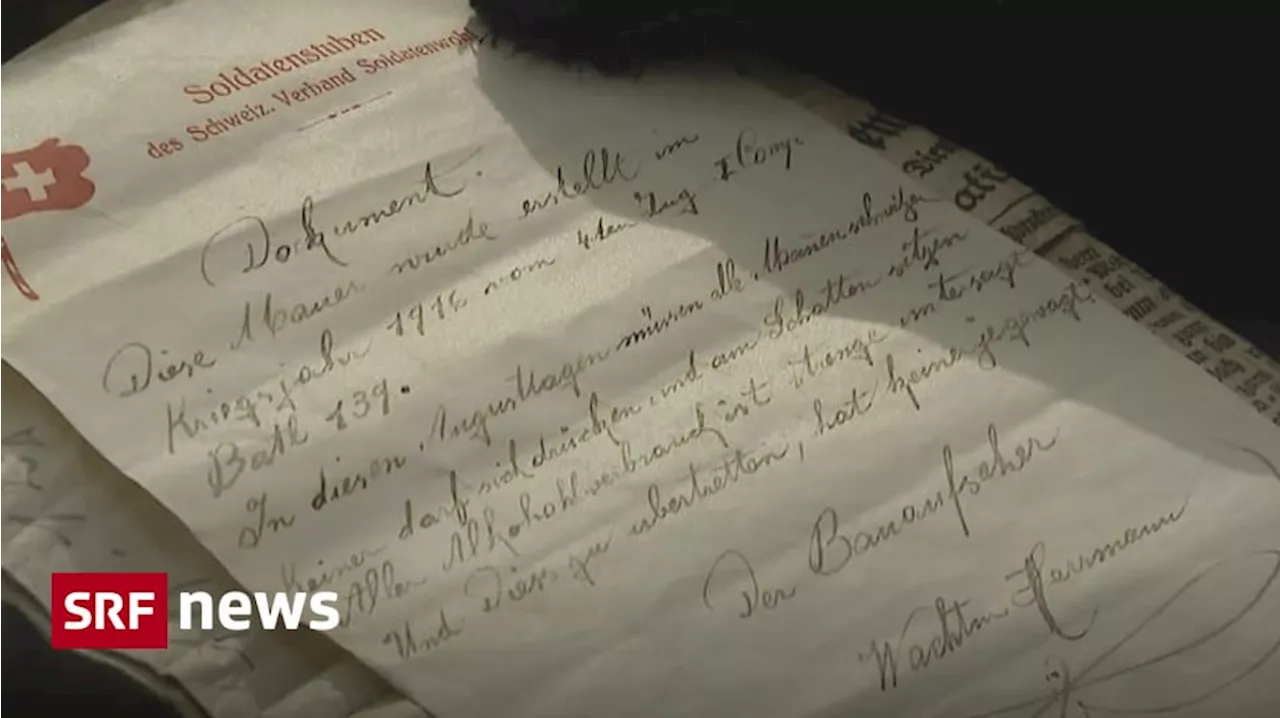 Soldatenstuben
des Schweiz. Verband Soldatenwohl
Dokument.
Diese Mauer wurde erstellt im
Kriegsjahr 1916 vom 4.ten Zug I Comp.
Batl 139.
In diesen Augusttagen müssen alle Mannen schwizen
keiner darf sich drücken und am Schatten sitzen
Aller Alkoholverbrauch ist strenge untersagt
Und Dies zu übertretten, hat keiner je gewagt!
Der Bauaufseher
Wachtm Herrmann
SRF news